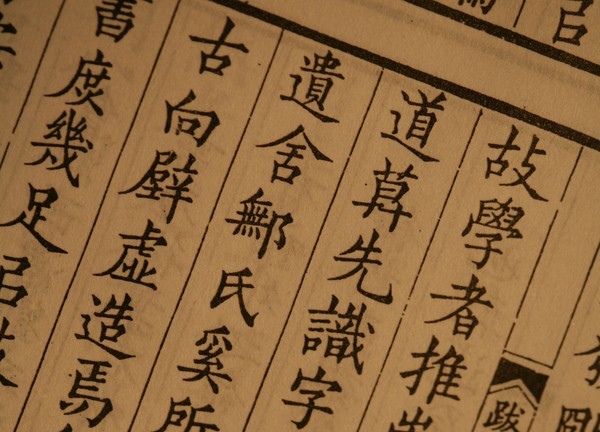 跋
故學者推
道莫先識字
遺舍鄦氏奚所
古向壁虛造焉
書庶幾足㠯